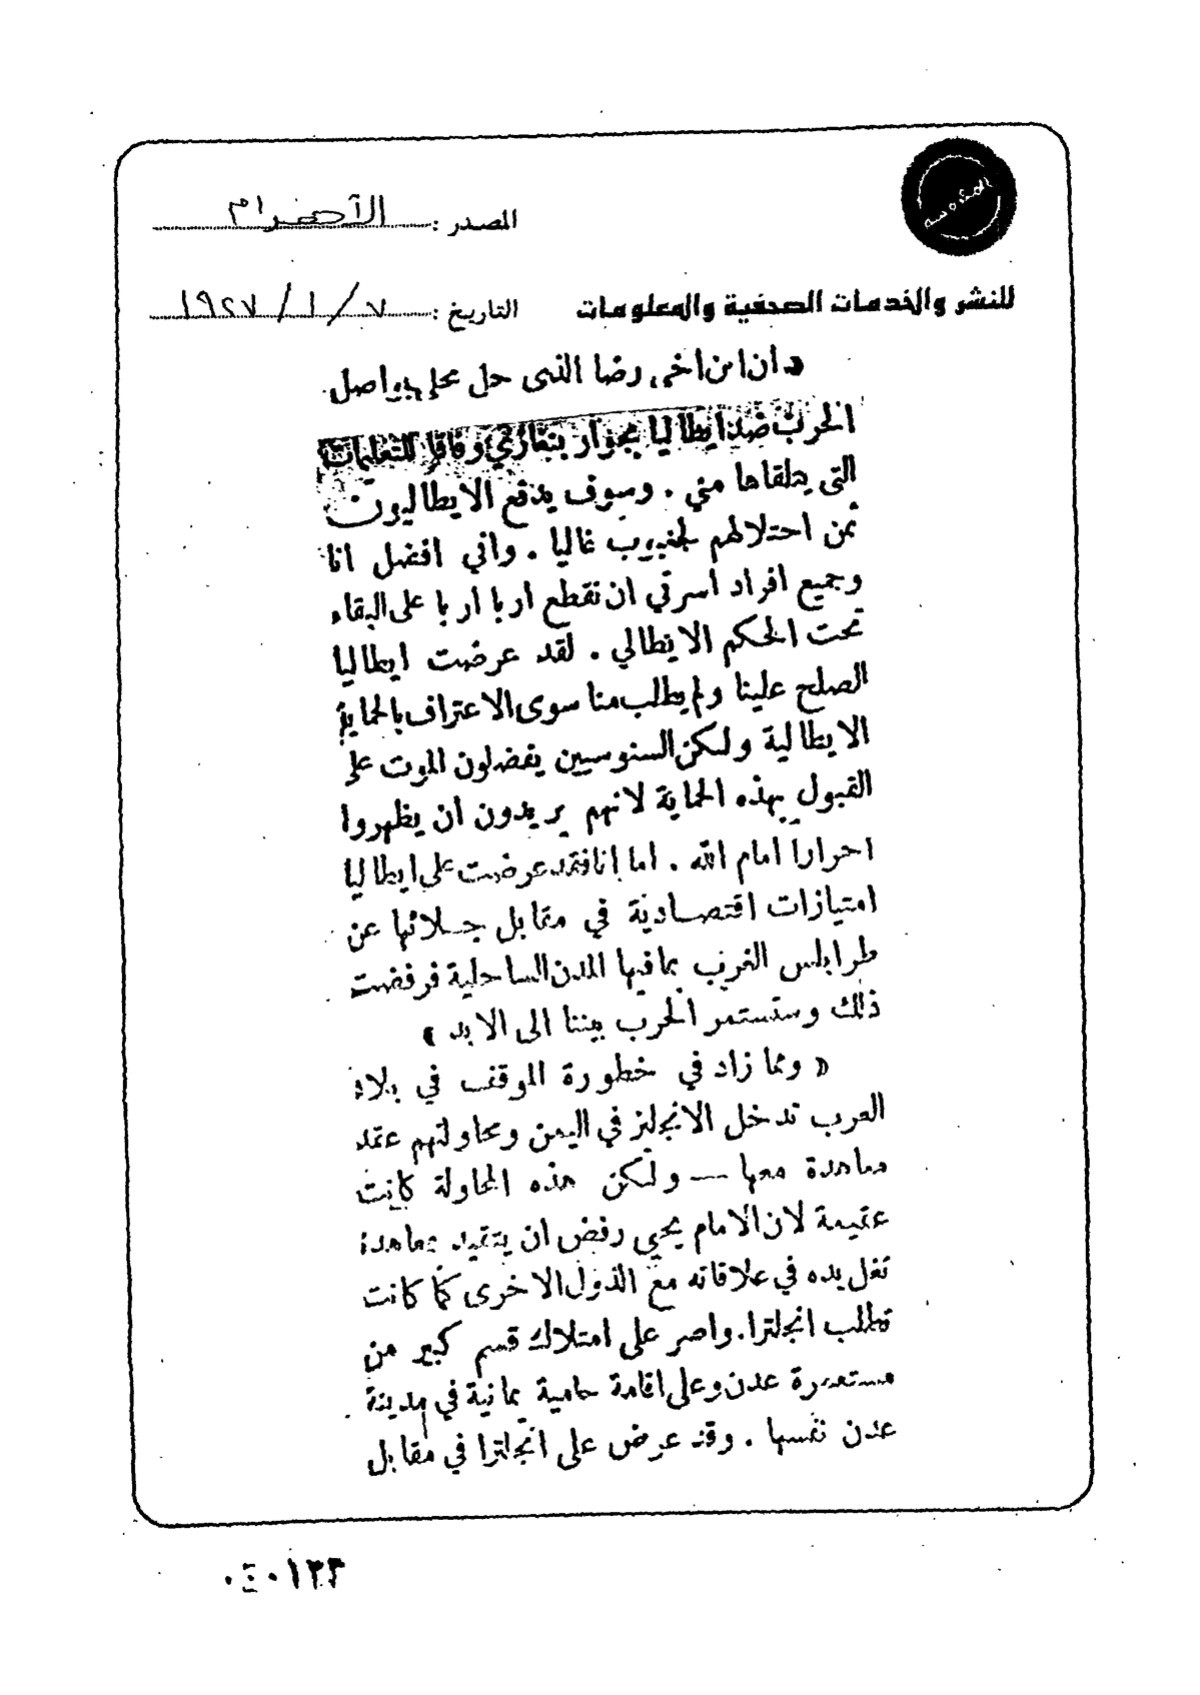 المصدر : الأهرام
للنشر والخدمات الصحفية والمعلومات
التاريخ : ٧ / ١ / ١٩٢٧
« ان ابن اخي رضا الذي حل محلي يواصل
الحرب ضد ايطاليا بجوار بنغازي وفاقا للتعليمات
التي يتلقاها مني . وسوف يدفع الايطاليون
ثمن احتلالهم لجغبوب غاليا . واني افضل انا
وجميع افراد اسرتي ان نقطع اربا اربا على البقاء
تحت الحكم الايطالي . لقد عرضت ايطاليا
الصلح علينا ولم يطلب منا سوى الاعتراف بالحماية
الايطالية ولكن السنوسيين يفضلون الموت على
القبول بهذه الحماية لانهم يريدون ان يظهروا
احرارا امام الله . اما انا فقد عرضت على ايطاليا
امتيازات اقتصادية في مقابل جلائها عن
طرابلس الغرب بما فيها المدن الساحلية فرفضت
ذلك وستستمر الحرب بيننا الى الابد »
« ومما زاد في خطورة الموقف في بلاد
العرب تدخل الانجليز في اليمن ومحاولتهم عقد
معاهدة معها — ولكن هذه المحاولة كانت
عقيمة لان الامام يحيى رفض ان يتقيد بمعاهدة
تغل يده في علاقاته مع الدول الاخرى كما كانت
تطلب انجلترا. واصر على امتلاك قسم كبير من
مستعمرة عدن وعلى اقامة حامية يمانية في مدينة
عدن نفسها . وقد عرض على انجلترا في مقابل